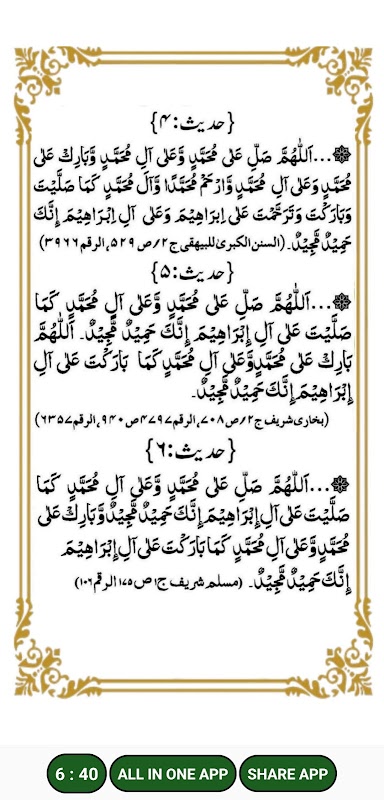 {حدیث:۴}
...اَللّٰهُمَّ صَلِّ عَلٰى مُحَمَّدٍ وَّعَلٰى آلِ مُحَمَّدٍ وَّبَارِكْ عَلٰى
مُحَمَّدٍ وَعَلٰى آلِ مُحَمَّدٍ وَّارْحَمْ مُحَمَّدًا وَّآلَ مُحَمَّدٍ كَمَا صَلَّيْتَ
وَبَارَكْتَ وَتَرَحَّمْتَ عَلٰى اِبْرَاهِيْمَ وَعَلٰى آلِ اِبْرَاهِيْمَ اِنَّكَ
حَمِيْدٌ مَّجِيْدٌ۔ (السنن الکبریٰ للبیهقی ج۲/ص ۵۲۹، الرقم ۳۹۶۶)
{حدیث:۵}
...اَللّٰهُمَّ صَلِّ عَلٰى مُحَمَّدٍ وَّعَلٰى آلِ مُحَمَّدٍ كَمَا
صَلَّيْتَ عَلٰى آلِ إِبْرَاهِيْمَ إِنَّكَ حَمِيْدٌ مَّجِيْدٌ۔ اَللّٰهُمَّ
بَارِكْ عَلٰى مُحَمَّدٍ وَّعَلٰى آلِ مُحَمَّدٍ كَمَا بَارَكْتَ عَلٰى آلِ
إِبْرَاهِيْمَ إِنَّكَ حَمِيْدٌ مَّجِيْدٌ۔
(بخاری شریف ج۲/ص ۷۰۸، الرقم ۴۷۹۷ ص ۹۴۰، الرقم ۶۳۵۷)
{حدیث:۶}
...اَللّٰهُمَّ صَلِّ عَلٰى مُحَمَّدٍ وَّعَلٰى آلِ مُحَمَّدٍ كَمَا
صَلَّيْتَ عَلٰى آلِ إِبْرَاهِيْمَ إِنَّكَ حَمِيْدٌ مَّجِيْدٌ وَّبَارِكْ عَلٰى
مُحَمَّدٍ وَّعَلٰى آلِ مُحَمَّدٍ كَمَا بَارَكْتَ عَلٰى آلِ إِبْرَاهِيْمَ
إِنَّكَ حَمِيْدٌ مَّجِيْدٌ۔ (مسلم شریف ج۱ ص ۱۷۵ الرقم ۱۰۶)
6 : 40 ALL IN ONE APP SHARE APP